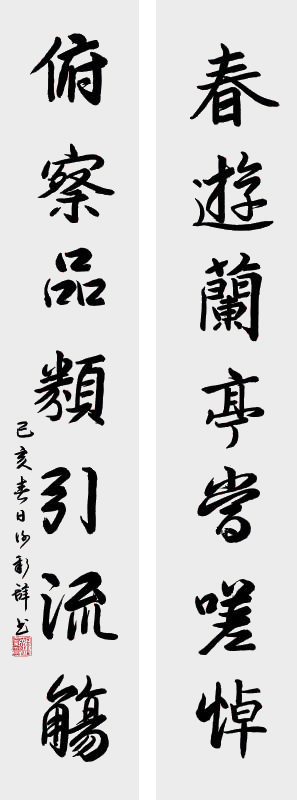 春遊蘭亭嘗嗟悼
俯察品類引流觴
己亥春日沙彩譁书